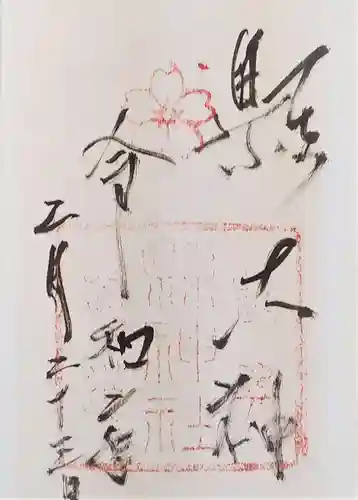 縣大神
令和二年
二月二十三日